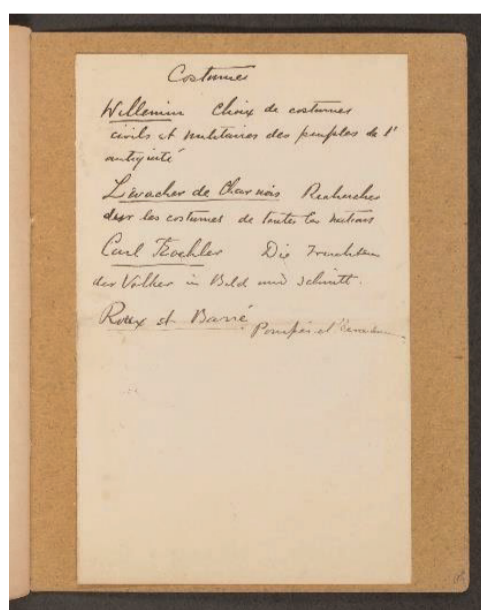 Costumes
Willemin Choix de costumes
civils et militaires des peuples de l'
antiquité
Levacher de Charnois Recherches
sur les costumes de toutes les nations
Carl Koehler Die Trachten
der Völker in Bild und Schnitt.
Roux et Barré Pompéi et